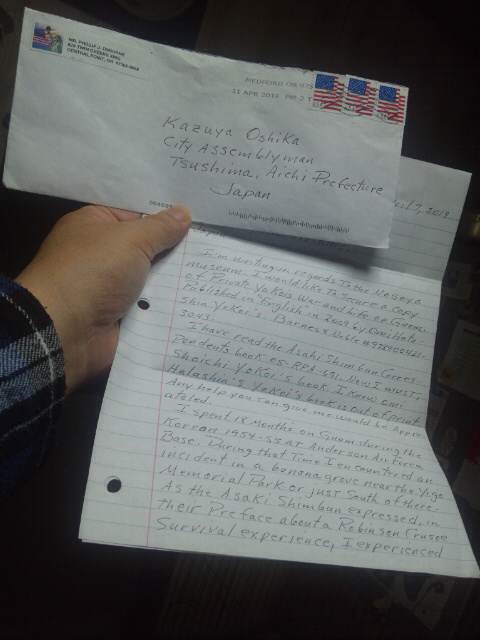 MR. PHILLIP J.
MEDFORD OR 975
11 APR 2013 PM 2 T
Kazuya Oshika
City Assemblyman
Tsushima, Aichi Prefecture
Japan
7, 2013
I'm writing in regards to the
museum. I would like to secure a copy
of Private Yokoi's War and Life on Guam:
Published in English in 2009 by Omi Hata-
Shin Yokoi's. Barnes & Noble
I have read the Asahi Shimbun Corres-
pondents book
Shoichi Yokoi's book. I Know Omi
Hatashin's Yokoi's book is out of print
Any help you can give me would be Appre-
ciated.
I spent 18 Months on Guam during the
Korean 1954-55 AT Anderson Air Force
Base. During that Time I encountered an
incident in a banana grove near the Yigo
Memorial Park or just South of there.
As the Asaki Shimbun expressed, in
their Preface about a Robinson Crusoe
Survival experience, I experienced